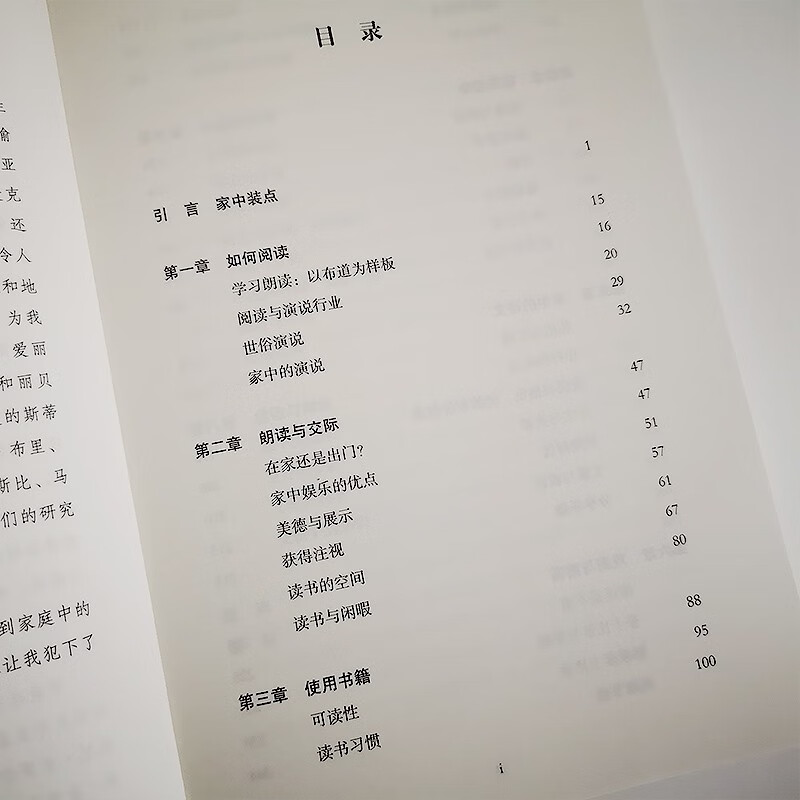 亚
克
还
令人
和地
为我
爱丽
和丽贝
的斯蒂
布里、
斯比、马
们的研究
到家庭中的
让我犯下了
目 录
引 言 家中装点 1
第一章 如何阅读 15
学习朗读：以布道为样板 16
阅读与演说行业 20
世俗演说 29
家中的演说 32
第二章 朗读与交际 47
在家还是出门？ 47
家中娱乐的优点 51
美德与展示 57
获得注视 61
读书的空间 67
读书与闲暇 80
第三章 使用书籍 88
可读性 95
读书习惯 100
i